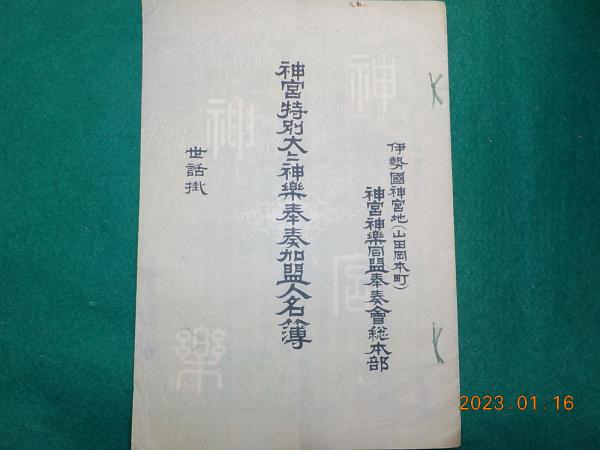 伊勢國神宮地(山田岡本町)
神宮神樂同盟奉奏會総本部
神宮特別大々神樂奉奏加盟人名簿
世話掛
神宮
神樂
2023.01.16